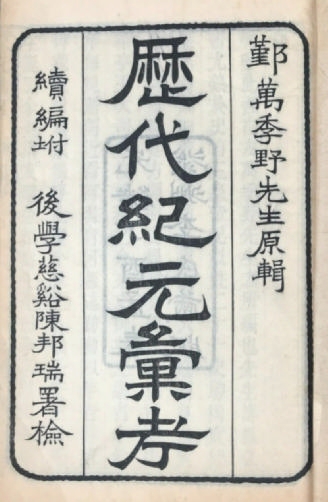 鄞萬季野先生原輯
歷代紀元彙考
續編坿 後學慈谿陳邦瑞署檢